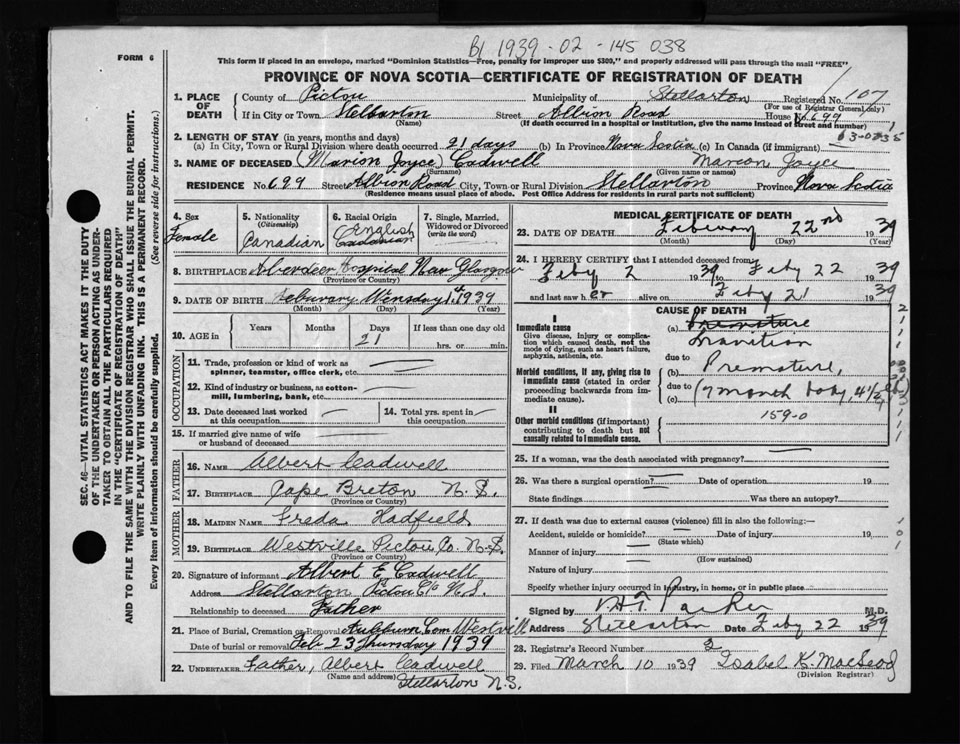 B1 1939 - 02 - 145 038
FORM 6
This form if placed in an envelope, marked "Dominion Statistics—Free, penalty for improper use $300," and properly addressed will pass through the mail "FREE"
PROVINCE OF NOVA SCOTIA—CERTIFICATE OF REGISTRATION OF DEATH
1. PLACE OF DEATH
County of Pictou Municipality of Stellarton Registered No. 107
(For use of Registrar General only)
If in City or Town Stellarton Street Albion Road House No. 699
(Name) (If death occurred in a hospital or institution, give the name instead of street and number)
2. LENGTH OF STAY (in years, months and days)
(a) In City, Town or Rural Division where death occurred 21 days (b) In Province Nova Scotia (c) In Canada (if immigrant)
3. NAME OF DECEASED (Marion Joyce) Cadwell Marion Joyce
(Surname) (Given name or names)
RESIDENCE No. 699 Street Albion Road City, Town or Rural Division Stellarton Province Nova Scotia
(Residence means usual place of abode. Post Office Address for residents in rural parts not sufficient)
4. Sex Female
5. Nationality (Citizenship) Canadian
6. Racial Origin English
7. Single, Married, Widowed or Divorced (write the word)
8. BIRTHPLACE Aberdeen Hospital New Glasgow
(Province or Country)
9. DATE OF BIRTH Feburary Wensday 1st 1939
(Month) (Day) (Year)
10. AGE in Years Months Days If less than one day old
21 hrs. or min.
OCCUPATION
11. Trade, profession or kind of work as spinner, teamster, office clerk, etc.
12. Kind of industry or business, as cotton-mill, lumbering, bank, etc.
13. Date deceased last worked at this occupation
14. Total yrs. spent in this occupation
15. If married give name of wife or husband of deceased
FATHER
16. NAME Albert Cadwell
17. BIRTHPLACE Cape Breton N.S.
(Province or Country)
MOTHER
18. MAIDEN NAME Freda Hadfield
19. BIRTHPLACE Westville Pictou Co. N.S.
(Province or Country)
20. Signature of informant Albert E Cadwell
Address Stellarton Pictou Co N.S.
Relationship to deceased Father
21. Place of Burial, Cremation or Removal Auburn Cem Westvill
Date of burial or removal Feb 23 Thursday 1939
22. UNDERTAKER Father, Albert Cadwell
(Name and address)
Stellarton N.S.
MEDICAL CERTIFICATE OF DEATH
23. DATE OF DEATH Febuary 22nd 1939
(Month) (Day) (Year)
24. I HEREBY CERTIFY that I attended deceased from
Feby 2 1939 to Feby 22 1939
and last saw her alive on Feby 21 1939
CAUSE OF DEATH
I
Immediate cause
Give disease, injury or complication which caused death, not the mode of dying, such as heart failure, asphyxia, asthenia, etc.
(a) Premature
Inanition
due to
Morbid conditions, if any, giving rise to immediate cause (stated in order proceeding backwards from immediate cause).
(b) Premature,
due to
(c) 7 month baby, 4 1/2
II
Other morbid conditions (if important) contributing to death but not causally related to immediate cause.
159-0
25. If a woman, was the death associated with pregnancy?
26. Was there a surgical operation? Date of operation 19
State findings Was there an autopsy?
27. If death was due to external causes (violence) fill in also the following:—
Accident, suicide or homicide? Date of injury 19
(State which)
Manner of injury
(How sustained)
Nature of injury
Specify whether injury occurred in industry, in home, or in public place
Signed by Parker M.D.
Address Stellarton Date Feby 22 1939
28. Registrar's Record Number
29. Filed March 10 1939 Isabel K. MacLeod
(Division Registrar)
SEC. 46—VITAL STATISTICS ACT MAKES IT THE DUTY
OF THE UNDERTAKER OR PERSON ACTING AS UNDER-
TAKER TO OBTAIN ALL THE PARTICULARS REQUIRED
IN THE "CERTIFICATE OF REGISTRATION OF DEATH"
AND TO FILE THE SAME WITH THE DIVISION REGISTRAR WHO SHALL ISSUE THE BURIAL PERMIT.
WRITE PLAINLY WITH UNFADING INK. THIS IS A PERMANENT RECORD.
Every item of information should be carefully supplied. (See reverse side for instructions.)